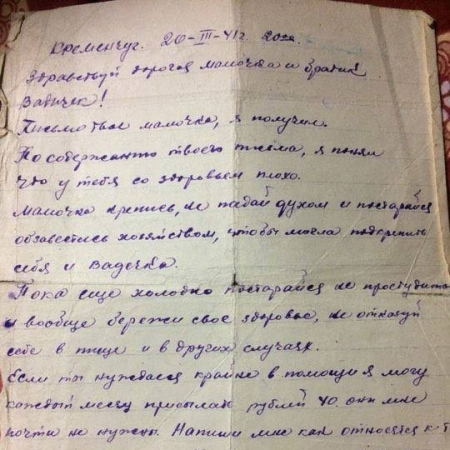 Кременчуг. 20-III-41г.
Здравствуй дорогая мамочка и братик
Вадичек!
Письмо твое мамочка, я получил.
По содержанию твоего письма, я понял
что у тебя со здоровьем плохо.
Мамочка крепись, не падай духом и постарайся
обзавестись хозяйством, чтобы могла подкрепить
себя и Вадечка.
Пока еще холодно постарайся не простудить
и вообще береги свое здоровье, не откажуй
себе в пище и в других случаях.
Если ты нуждаеся крайне в помощи я могу
каждый месяц присылать рублей 40 они мне
почти не нужны. Напиши мне как относятся к т